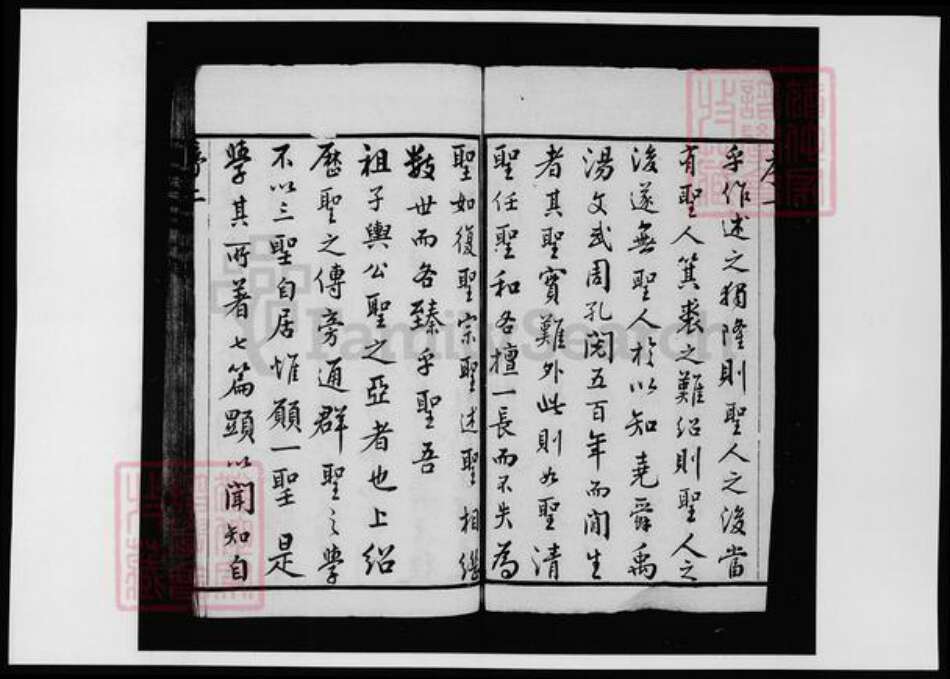 乎作述之獨隆則聖人之後當
有聖人箕裘之難紹則聖人之
後遂無聖人於以知堯舜禹
湯文武周孔閱五百年而間生
者其聖實難外此則如聖清
聖任聖和各擅一長而不失為
聖如復聖宗聖述聖相繼
數世而各臻乎聖吾
祖子輿公聖之亞者也上紹
歷聖之傳旁通群聖之學
不以三聖自居惟願一聖是
學其所著七篇顯以聞知自
序二
FamilySearch